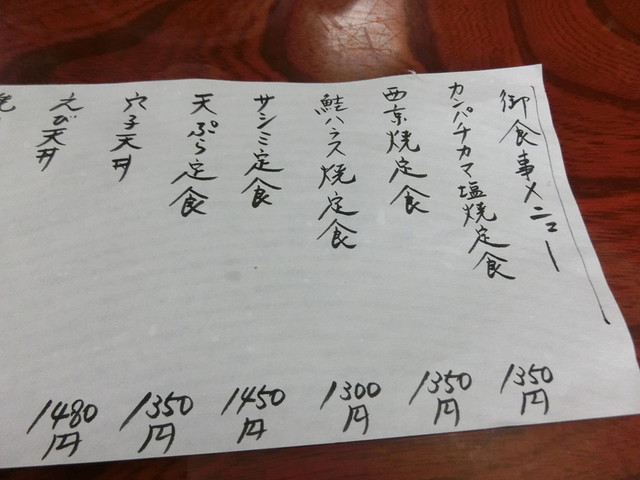 御食事メニュー
カンパチカマ塩焼定食 1350円
西京焼定食 1350円
鮭ハラス焼定食 1300円
サシミ定食 1450円
天ぷら定食 1350円
穴子天丼 1480円
えび天丼